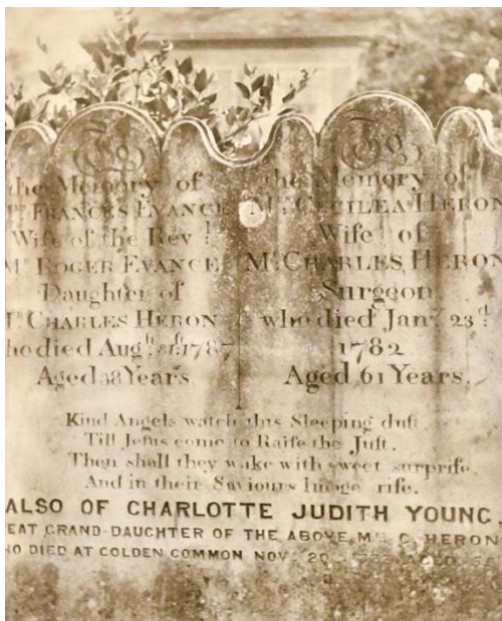 To
the Memory of
FRANCES EVANCE
Wife of the Revd.
Mr ROGER EVANCE
Daughter of
Mr CHARLES HERON
ho died Augst 1787
Aged 38 Years
To
the Memory of
Mrs CECILEA HERON
Wife of
Mr CHARLES HERON
Surgeon
who died Jany. 23d.
1782
Aged 61 Years.
Kind Angels watch this Sleeping duſt
Till Jeſus come to Raiſe the Juſt.
Then shall they wake with sweet surpriſe.
And in their Saviours Image riſe.
ALSO OF CHARLOTTE JUDITH YOUNG
EAT GRAND-DAUGHTER OF THE ABOVE MRS C. HERON
HO DIED AT COLDEN COMMON NOV 20